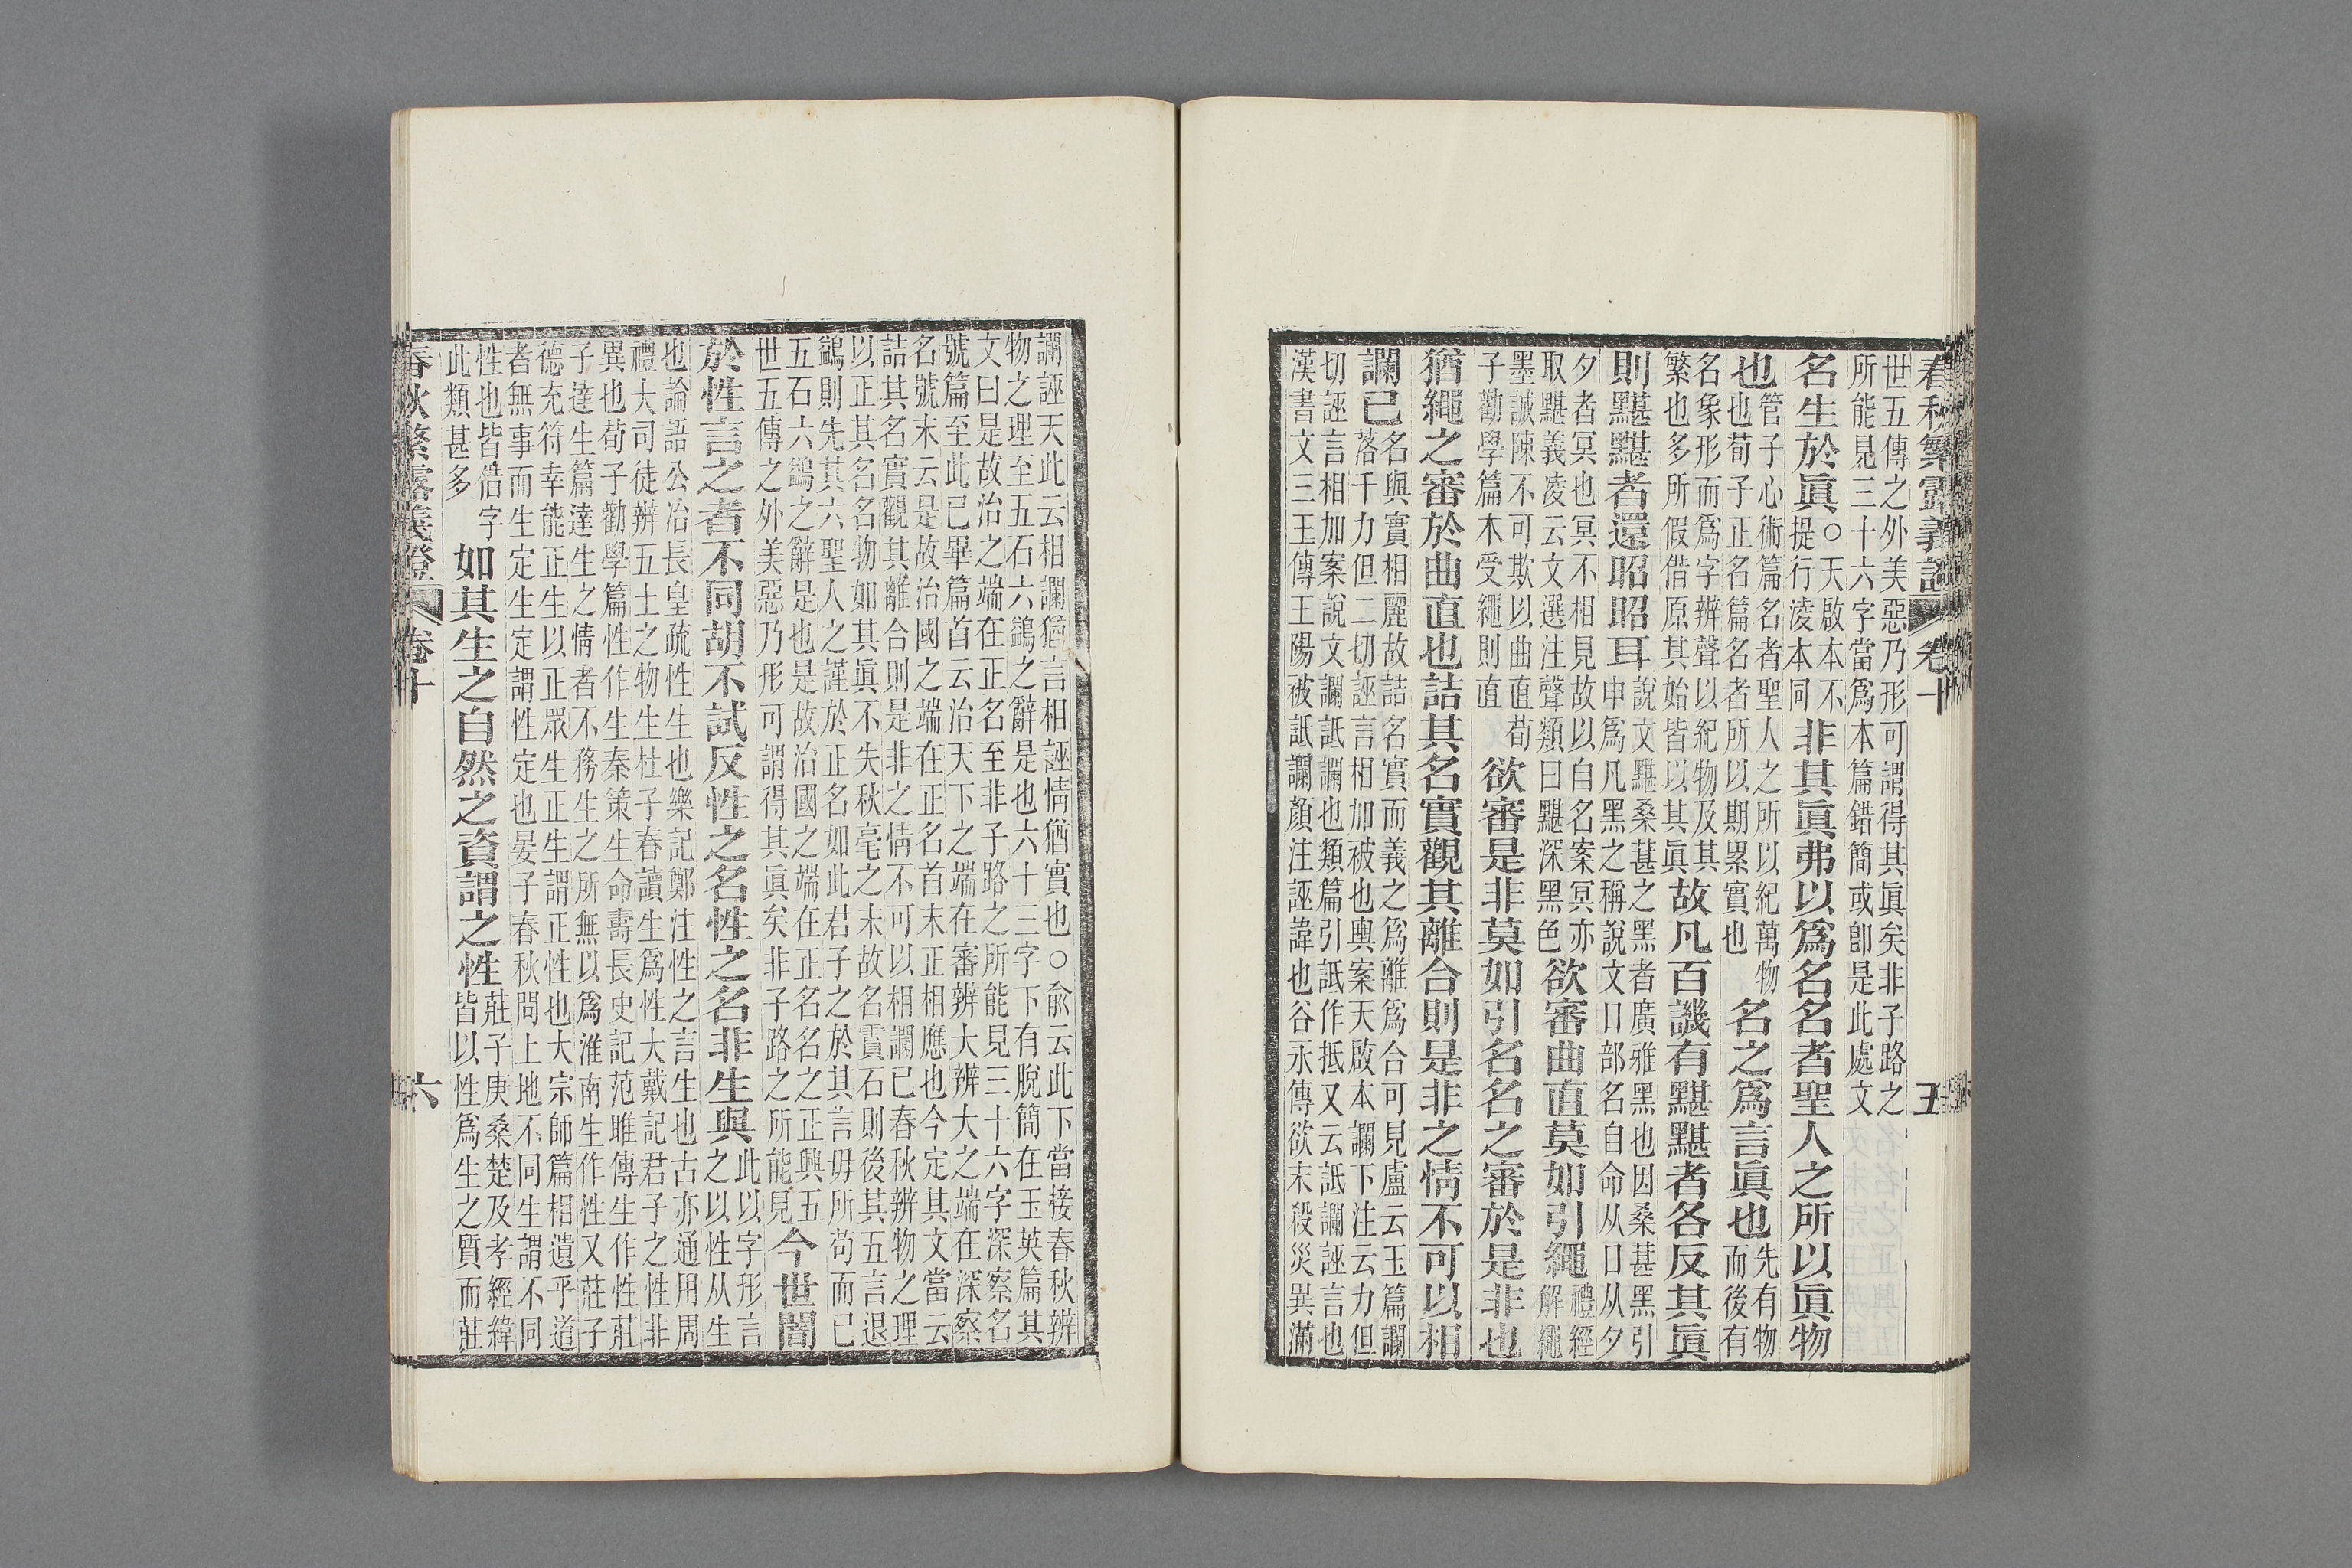 春秋繁露義證 卷十 五
世五傳之外美惡乃形可謂得其眞矣非子路之
所能見三十六字當爲本篇錯簡或卽是此處文
名生於眞
○天啟本不
提行淩本同
非其眞弗以爲名名者聖人之所以眞物
也
管子心術篇名者聖人之所以紀萬物
也荀子正名篇名者所以期累實也
名之爲言眞也
先有物
而後有
名象形而爲字辨聲以紀物及其
繁也多所假借原其始皆以其眞
故凡百譏有黮黮者各反其眞
則黮黮者還昭昭耳
說文黮桑葚之黑者廣雅黑也因桑葚黑引
申爲凡黑之稱說文口部名自命从口从夕
夕者冥也冥不相見故以自名案冥亦
取黮義凌云文選注聲類曰黮深黑色
欲審曲直莫如引繩
禮經
解繩
墨誠陳不可欺以曲直荀
子勸學篇木受繩則直
欲審是非莫如引名名之審於是非也
猶繩之審於曲直也詰其名實觀其離合則是非之情不可以相
讕已
名與實相麗故詰名實而義之爲離爲合可見盧云玉篇讕
落千力但二切誣言相加被也輿案天啟本讕下注云力但
切誣言相加案說文讕詆讕也類篇引詆作抵又云詆讕誣言也
漢書文三王傳王陽被詆讕顏注誣諱也谷永傳欲末殺災異滿
讕誣天此云相讕猶言相誣情猶實也○俞云此下當接春秋辨
物之理至五石六鷁之辭是也六十三字下有脫簡在玉英篇其
文曰是故治之端在正名至非子路之所能見三十六字深察名
號篇至此已畢篇首云治天下之端在審辨大辨大之端在深察
名號末云是故治國之端在正名首末正相應也今定其文當云
詰其名實觀其離合則是非之情不可以相讕已春秋辨物之理
以正其名名物如其眞不失秋毫之末故名霣石則後其五言退
鷁則先其六聖人之謹於正名如此君子之於其言毋所苟而已
五石六鷁之辭是也是故治國之端在正名名之正興五
世五傳之外美惡乃形可謂得其眞矣非子路之所能見
今世闇
於性言之者不同胡不試反性之名性之名非生與
此以字形言
之以性从生
也論語公冶長皇疏性生也樂記鄭注性之言生也古亦通用周
禮大司徒辨五土之物生杜子春讀生爲性大戴記君子之性非
異也荀子勸學篇性作生秦策生命壽長史記范睢傳生作性莊
子達生篇達生之情者不務生之所無以爲淮南生作性又莊子
德充符幸能正生以正眾生正生謂正性也大宗師篇相遺乎道
者無事而生定生定謂性定也晏子春秋問上地不同生謂不同
性也皆借字
此類甚多
如其生之自然之資謂之性
莊子庚桑楚及孝經緯
皆以性爲生之質而莊
春秋繁露義證 卷十 六